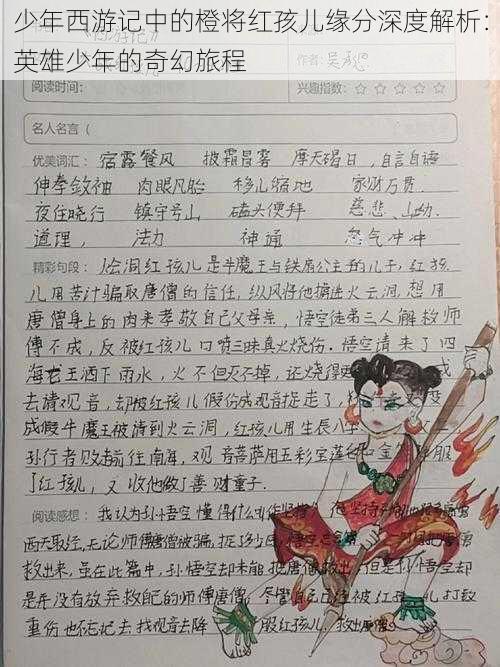 少年西游记中的橙将红孩儿缘分深度解析：
英雄少年的奇幻旅程
作者：吴承恩
阅读时间：
兴趣指数：☆☆☆☆☆
名人名言（
优美词汇：宿露餐风 披霜冒雾 摩天碣日，自言自语
伸拳敛袖 肉眼凡胎 移山缩地 家财万贯.
夜住晓行 镇守号山 磕头便拜 慈悲、山坳.
道理， 法力 神通 怒气冲冲
精彩句段：火云洞红孩儿是牛魔王与铁扇公主的儿子，红孩
儿用苦计骗取唐僧的信任，纵风将他摄进火云洞，想用
唐僧身上的肉来孝敬自己父母亲，悟空徒弟三人解救师
傅不成，反被红孩儿口喷三昧真火烧伤。悟空请来了四
海龙王洒下雨水，火不但灭不掉，还烧得
去请观音，却被红孩儿假份成观音捉走了，
成假牛魔王被请到火云洞，红孩儿用生辰八
孙行者败走前往南海，观音菩萨用五彩宝莲台和金箍
了红孩儿，又收他做了善财童子.
阅读感想：我认为孙悟空懂得什么叫作坚持，他坚持
西天取经，无论师傅唐僧被骗，捉了多少回，悟空总会
救出来，虽在此篇中，孙悟空却未能把唐僧救出，但是孙悟空却
是并没有放弃救自己的师傅唐僧，尽管自己已经被红孩儿打致
重伤也不忘记去找观音去降服红孩儿，救出唐僧